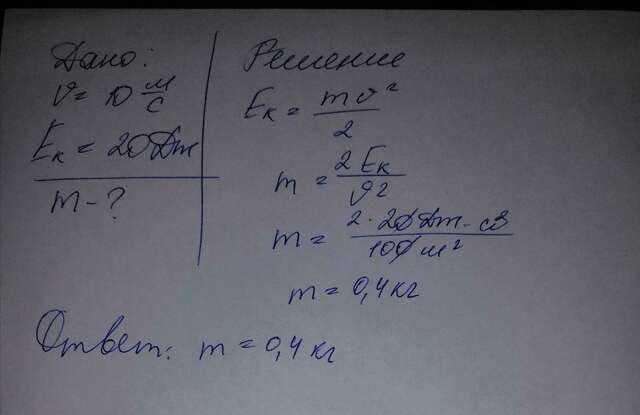 Дано:
υ = 10 м/с
Eк = 20 Дж
m - ?
Решение
Eк = mυ²/2
m = 2Eк/υ²
m = 2·20 Дж·с²/100 м²
m = 0,4 кг
Ответ: m = 0,4 кг